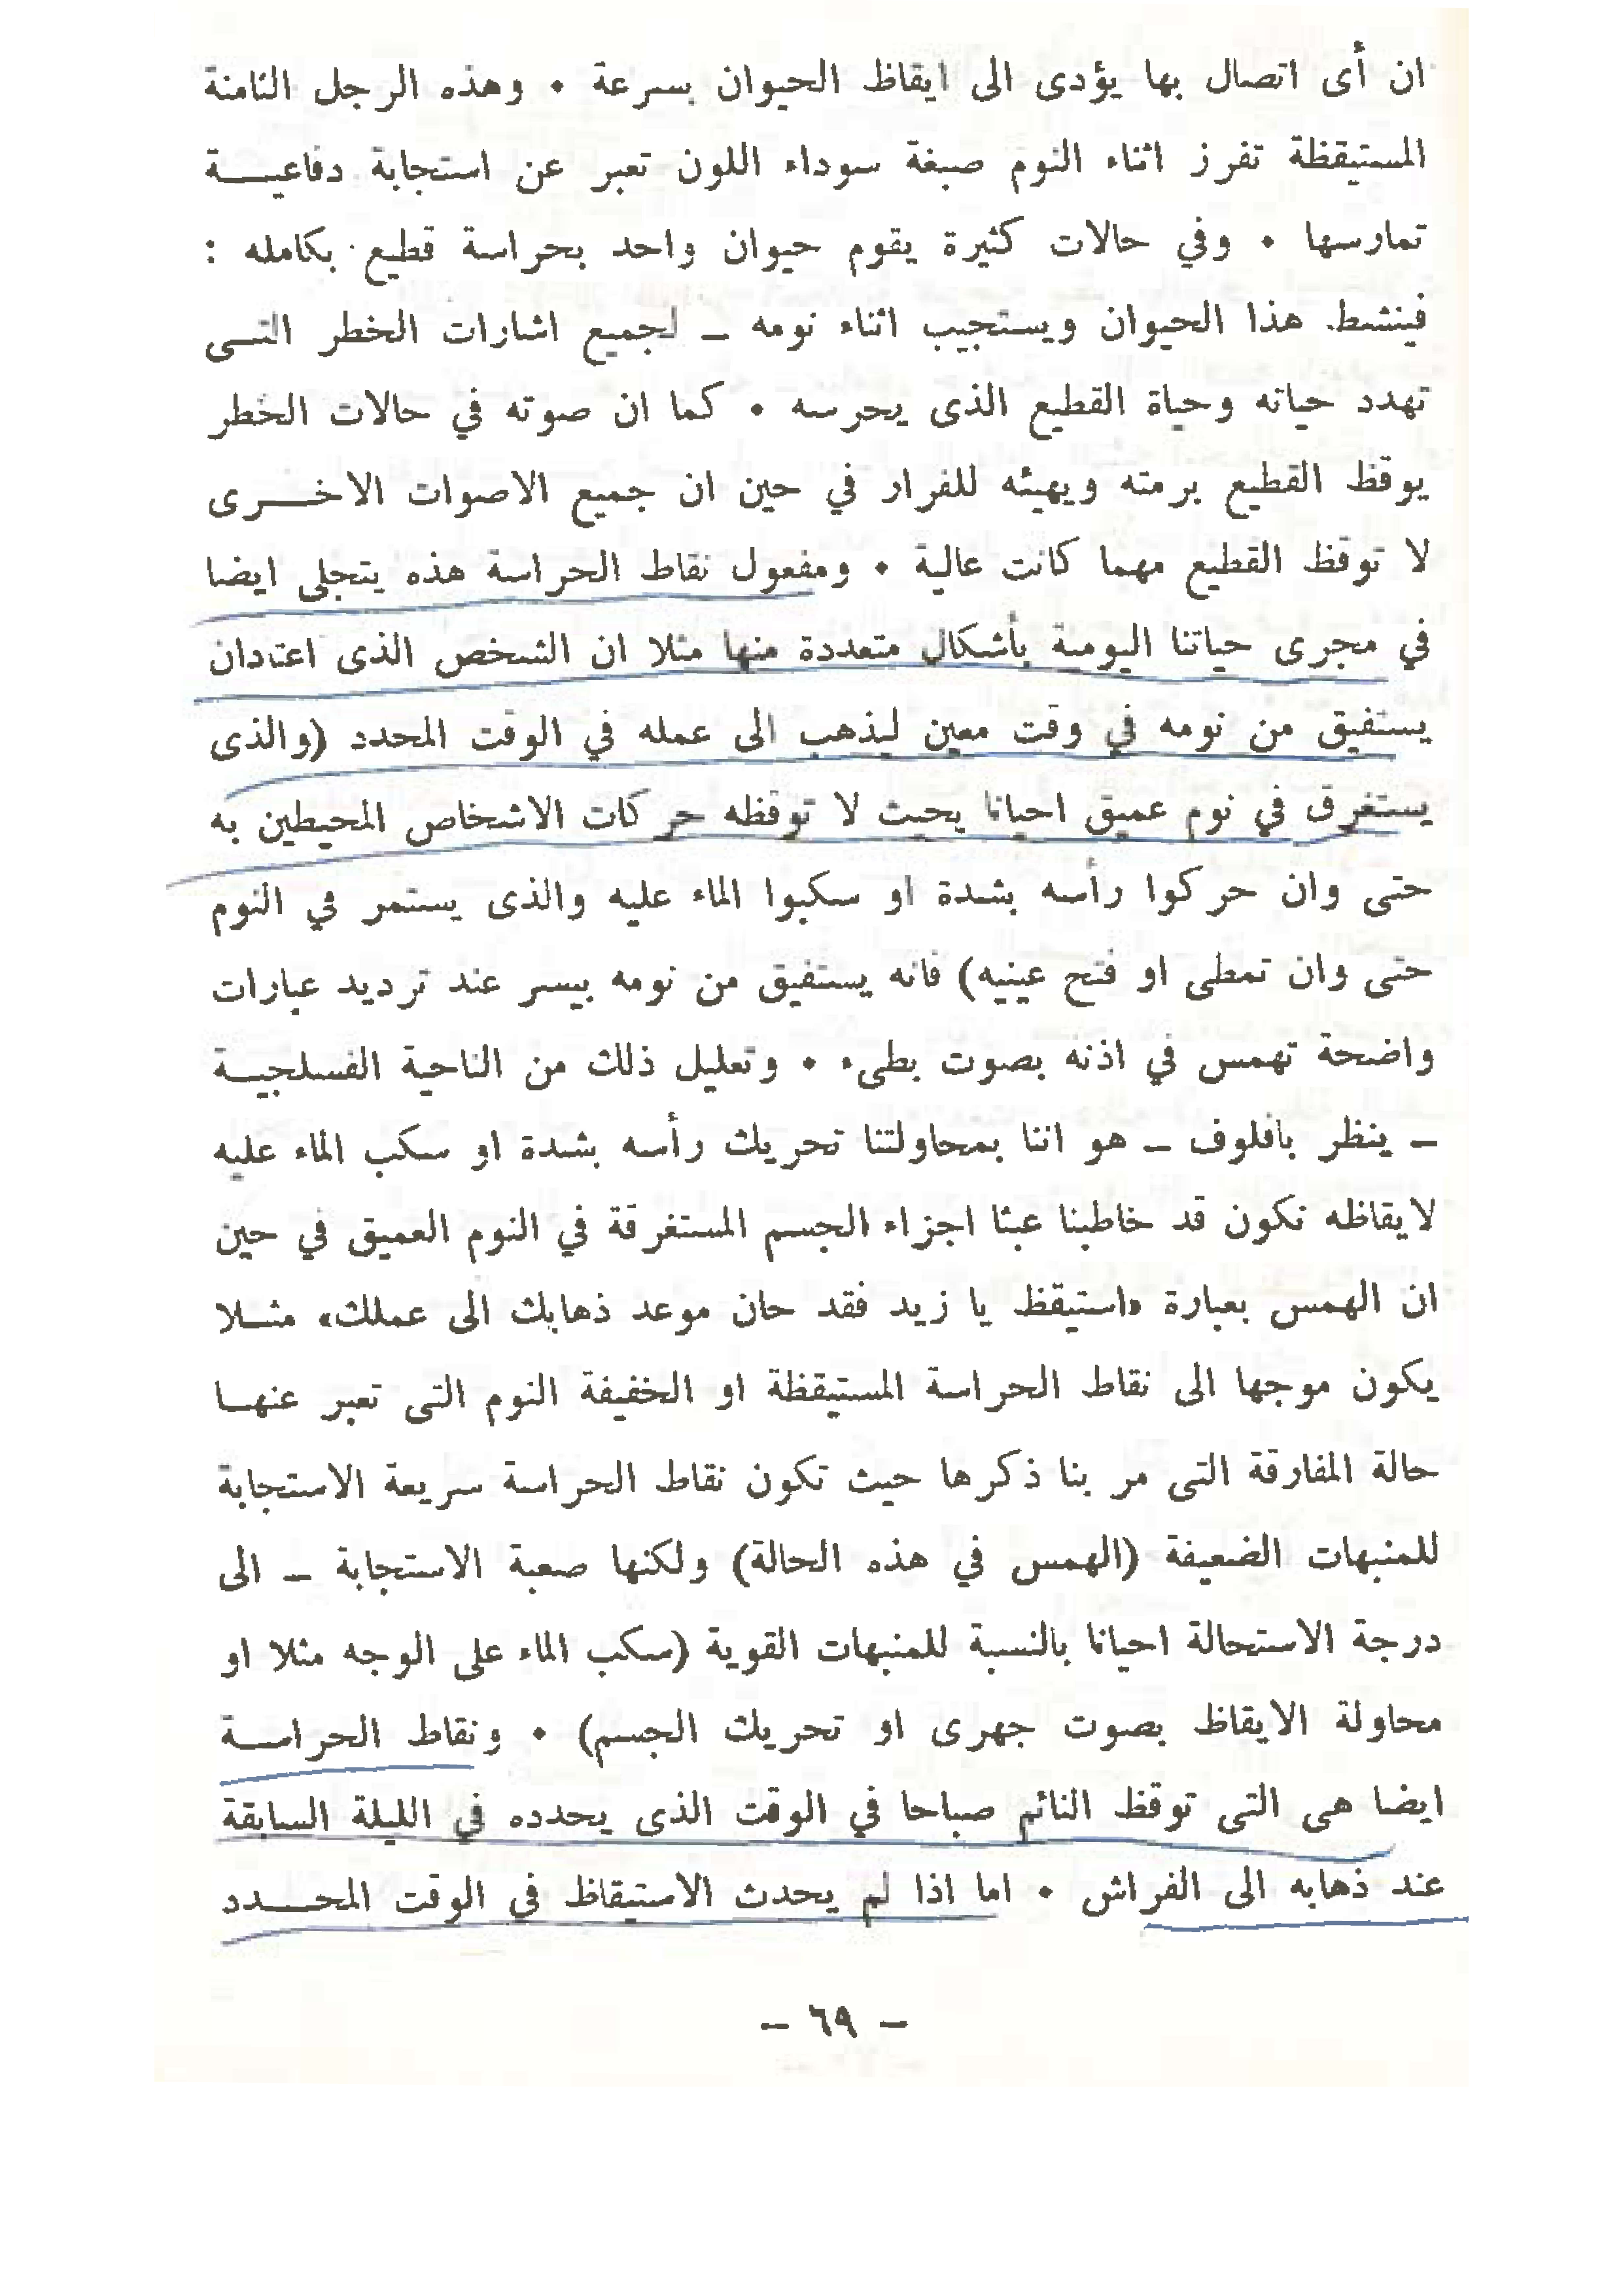 ان أى اتصال بها يؤدى الى ايقاظ الحيوان بسرعة • وهذه الرجل الثامنة
المستيقظة تفرز اثناء النوم صبغة سوداء اللون تعبر عن استجابة دفاعيــة
تمارسها • وفي حالات كثيرة يقوم حيوان واحد بحراسة قطيع بكامله :
فينشط هذا الحيوان ويستجيب اثناء نومه – لجميع اشارات الخطر التــى
تهدد حياته وحياة القطيع الذى يحرسه • كما ان صوته في حالات الخطر
يوقظ القطيع برمته ويهيئه للفرار في حين ان جميع الاصوات الاخــرى
لا توقظ القطيع مهما كانت عالية • ومفعول نقاط الحراسة هذه يتجلى ايضا
في مجرى حياتنا اليومية بأشكال متعددة منها مثلا ان الشخص الذى اعتادان
يستفيق من نومه في وقت معين ليذهب الى عمله في الوقت المحدد (والذى
يستغرق في نوم عميق احيانا بحيث لا توقظه حركات الاشخاص المحيطين به
حتى وان حركوا رأسه بشدة او سكبوا الماء عليه والذى يستمر في النوم
حتى وان تمطى او فتح عينيه) فانه يستفيق من نومه بيسر عند ترديد عبارات
واضحة تهمس في اذنه بصوت بطىء • وتعليل ذلك من الناحية الفسلجيــة
– بنظر بافلوف – هو اننا بمحاولتنا تحريك رأسه بشدة او سكب الماء عليه
لايقاظه نكون قد خاطبنا عبثا اجزاء الجسم المستغرقة في النوم العميق في حين
ان الهمس بعبارة «استيقظ يا زيد فقد حان موعد ذهابك الى عملك» مثــلا
يكون موجها الى نقاط الحراسة المستيقظة او الخفيفة النوم التى تعبر عنهــا
حالة المفارقة التى مر بنا ذكرها حيث تكون نقاط الحراسة سريعة الاستجابة
للمنبهات الضعيفة (الهمس في هذه الحالة) ولكنها صعبة الاستجابة – الى
درجة الاستحالة احيانا بالنسبة للمنبهات القوية (سكب الماء على الوجه مثلا او
محاولة الايقاظ بصوت جهرى او تحريك الجسم) • ونقاط الحراســة
ايضا هى التى توقظ النائم صباحا في الوقت الذى يحدده في الليلة السابقة
عند ذهابه الى الفراش • اما اذا لم يحدث الاستيقاظ في الوقت المحــدد
– ٦٩ –